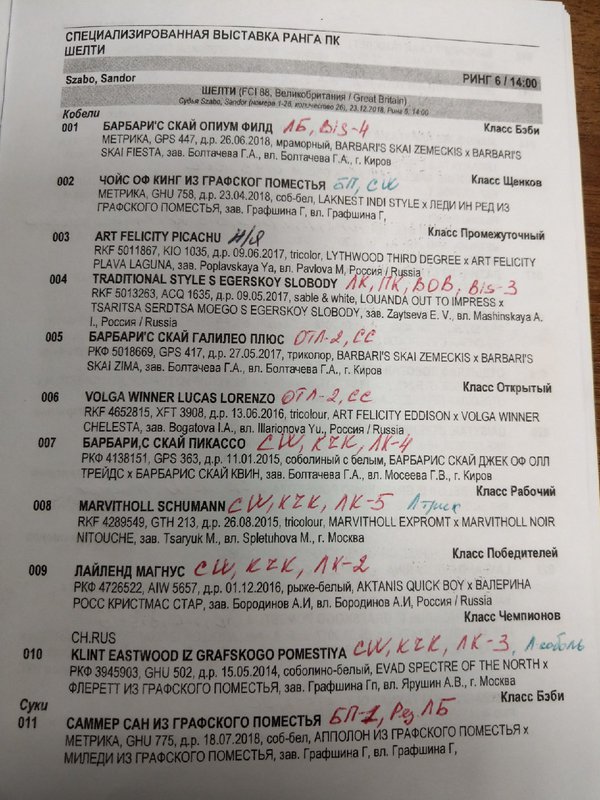 СПЕЦИАЛИЗИРОВАННАЯ ВЫСТАВКА РАНГА ПК
ШЕЛТИ
Szabo, Sandor РИНГ 6 / 14:00
ШЕЛТИ (FCI 88, Великобритания / Great Britain)
Судья Szabo, Sandor (номера 1-26, количество 26), 23.12.2018, Ринг 6, 14:00
Кобели
Класс Бэби
001 БАРБАРИ'С СКАЙ ОПИУМ ФИЛД ЛБ, Bis-4
МЕТРИКА, GPS 447, д.р. 26.06.2018, мраморный, BARBARI'S SKAI ZEMECKIS x BARBARI'S
SKAI FIESTA, зав. Болтачева Г.А., вл. Болтачева Г.А., г. Киров
Класс Щенков
002 ЧОЙС ОФ КИНГ ИЗ ГРАФСКОГ ПОМЕСТЬЯ БП, CW
МЕТРИКА, GHU 758, д.р. 23.04.2018, соб-бел, LAKNEST INDI STYLE x ЛЕДИ ИН РЕД ИЗ
ГРАФСКОГО ПОМЕСТЬЯ, зав. Графшина Г, вл. Графшина Г,
Класс Промежуточный
003 ART FELICITY PICACHU н/я
RKF 5011867, KIO 1035, д.р. 09.06.2017, tricolor, LYTHWOOD THIRD DEGREE x ART FELICITY
PLAVA LAGUNA, зав. Poplavskaya Ya, вл. Pavlova M, Россия / Russia
004 TRADITIONAL STYLE S EGERSKOY SLOBODY ЛК, ПК, BOB, Bis-3
RKF 5013263, ACQ 1635, д.р. 09.05.2017, sable & white, LOUANDA OUT TO IMPRESS x
TSARITSA SERDTSA MOEGO S EGERSKOY SLOBODY, зав. Zaytseva E. V., вл. Mashinskaya A.
I., Россия / Russia
005 БАРБАРИ'С СКАЙ ГАЛИЛЕО ПЛЮС ОТЛ-2, СС
РКФ 5018669, GPS 417, д.р. 27.05.2017, триколор, BARBARI'S SKAI ZEMECKIS x BARBARI'S
SKAI ZIMA, зав. Болтачева Г.А., вл. Болтачева Г.А., г. Киров
Класс Открытый
006 VOLGA WINNER LUCAS LORENZO ОТЛ-2, СС
RKF 4652815, XFT 3908, д.р. 13.06.2016, tricolour, ART FELICITY EDDISON x VOLGA WINNER
CHELESTA, зав. Bogatova I.A., вл. Illarionova Yu., Россия / Russia
007 БАРБАРИ,С СКАЙ ПИКАССО CW, КЧК, ЛК-4
РКФ 4138151, GPS 363, д.р. 11.01.2015, соболиный с белым, БАРБАРИС СКАЙ ДЖЕК ОФ ОЛЛ
ТРЕЙДС x БАРБАРИС СКАЙ КВИН, зав. Болтачева Г.А., вл. Мосеева Г.В., г. Киров
Класс Рабочий
008 MARVITHOLL SCHUMANN CW, КЧК, ЛК-5
RKF 4289549, GTH 213, д.р. 26.08.2015, tricolour, MARVITHOLL EXPROMT x MARVITHOLL NOIR
NITOUCHE, зав. Tsaryuk M., вл. Spletuhova M., г. Москва
Класс Победителей
009 ЛАЙЛЕНД МАГНУС CW, КЧК, ЛК-2
РКФ 4726522, AIW 5657, д.р. 01.12.2016, рыже-белый, AKTANIS QUICK BOY x ВАЛЕРИНА
РОСС КРИСТМАС СТАР, зав. Бородинов А.И, вл. Бородинов А.И, Россия / Russia
Класс Чемпионов
CH.RUS
010 KLINT EASTWOOD IZ GRAFSKOGO POMESTIYA CW, КЧК, ЛК-3, Л-соболь
РКФ 3945903, GHU 502, д.р. 15.05.2014, соболино-белый, EVAD SPECTRE OF THE NORTH x
ФЛЕРЕТТ ИЗ ГРАФСКОГО ПОМЕСТЬЯ, зав. Графшина Гп, вл. Ярушин А.В., г. Москва
Суки
Класс Бэби
011 САММЕР САН ИЗ ГРАФСКОГО ПОМЕСТЬЯ БП-1, Рез ЛБ
МЕТРИКА, GHU 775, д.р. 18.07.2018, соб-бел, АППОЛОН ИЗ ГРАФСКОГО ПОМЕСТЬЯ x
МИЛЕДИ ИЗ ГРАФСКОГО ПОМЕСТЬЯ, зав. Графшина Г, вл. Графшина Г,